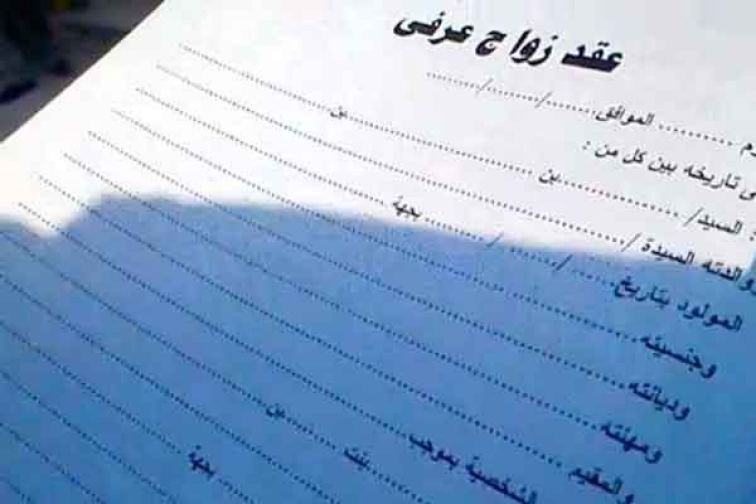 عقد زواج عرفى
الموافق ....../......../........
تاريخه بين كل من :
السيد/ .................. بن .................. بن ..................
والدته السيدة / ..................
المولود بتاريخ ....../......../........ بجهة ..................
وجنسيته ..................
وديانته ..................
ومهنته ..................
المقيم ..................
الشخصية بموجب ..................
بنت .................. بن ..................
بجهة ..................